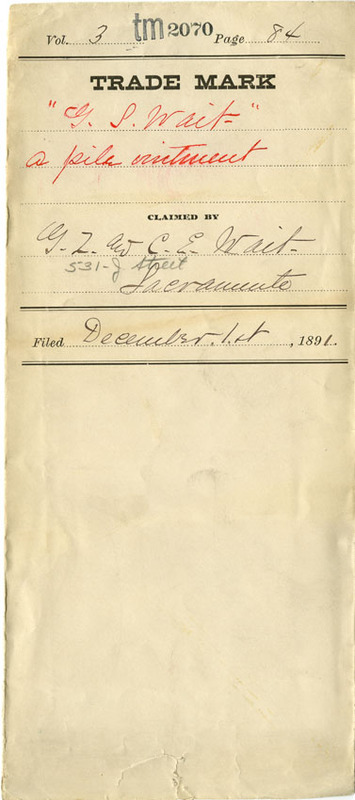 Vol. 3 tm 2070 Page 84
TRADE MARK
"G. S. Wait"
a pile ointment
CLAIMED BY
G. Z. and C. E. Wait
531-J Street
Sacramento
Filed December 1st, 1891.